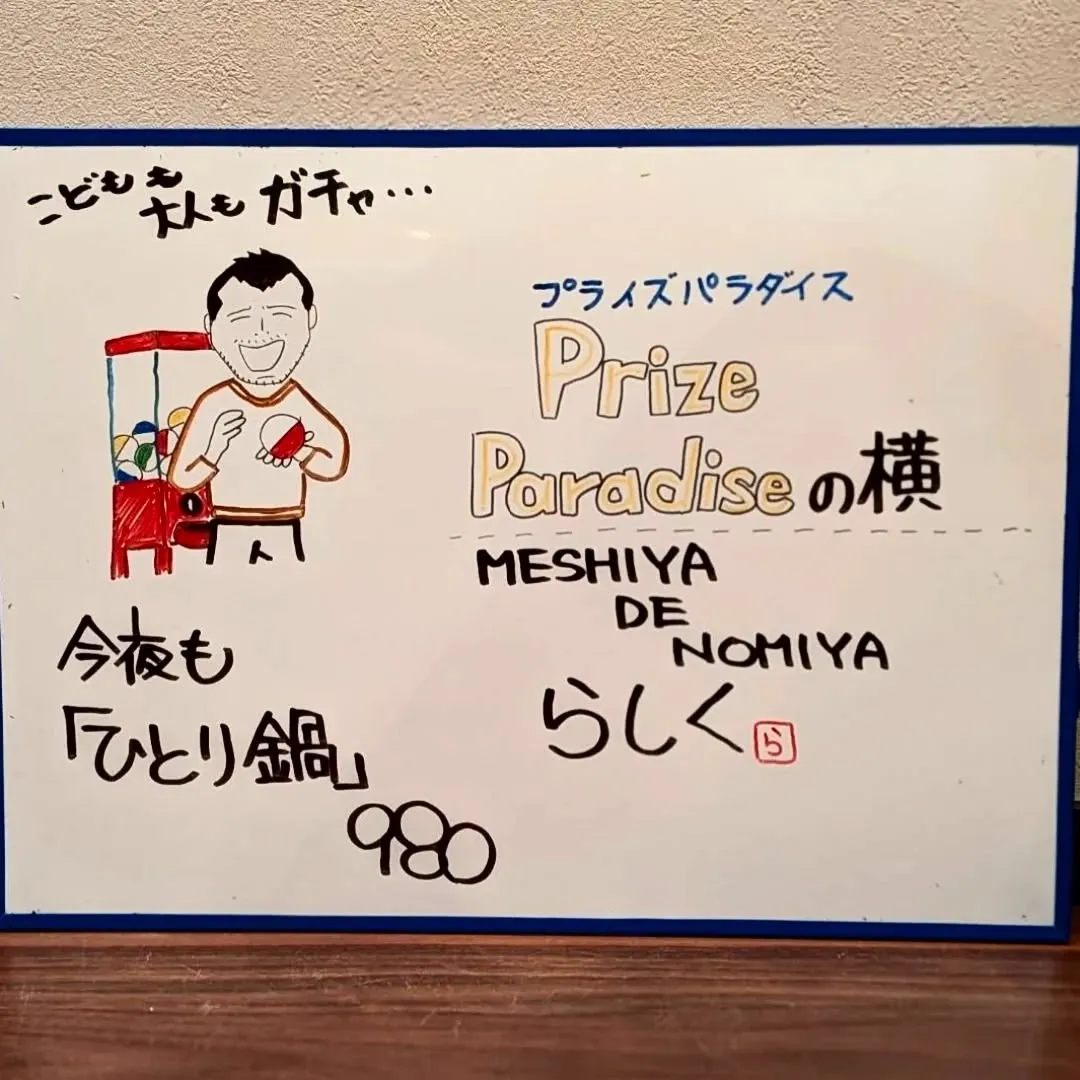 こどもも
大人も ガチャ…
プライズパラダイス
Prize
Paradiseの横
MESHIYA
DE
NOMIYA
らしく ら
今夜も
「ひとり鍋」
980